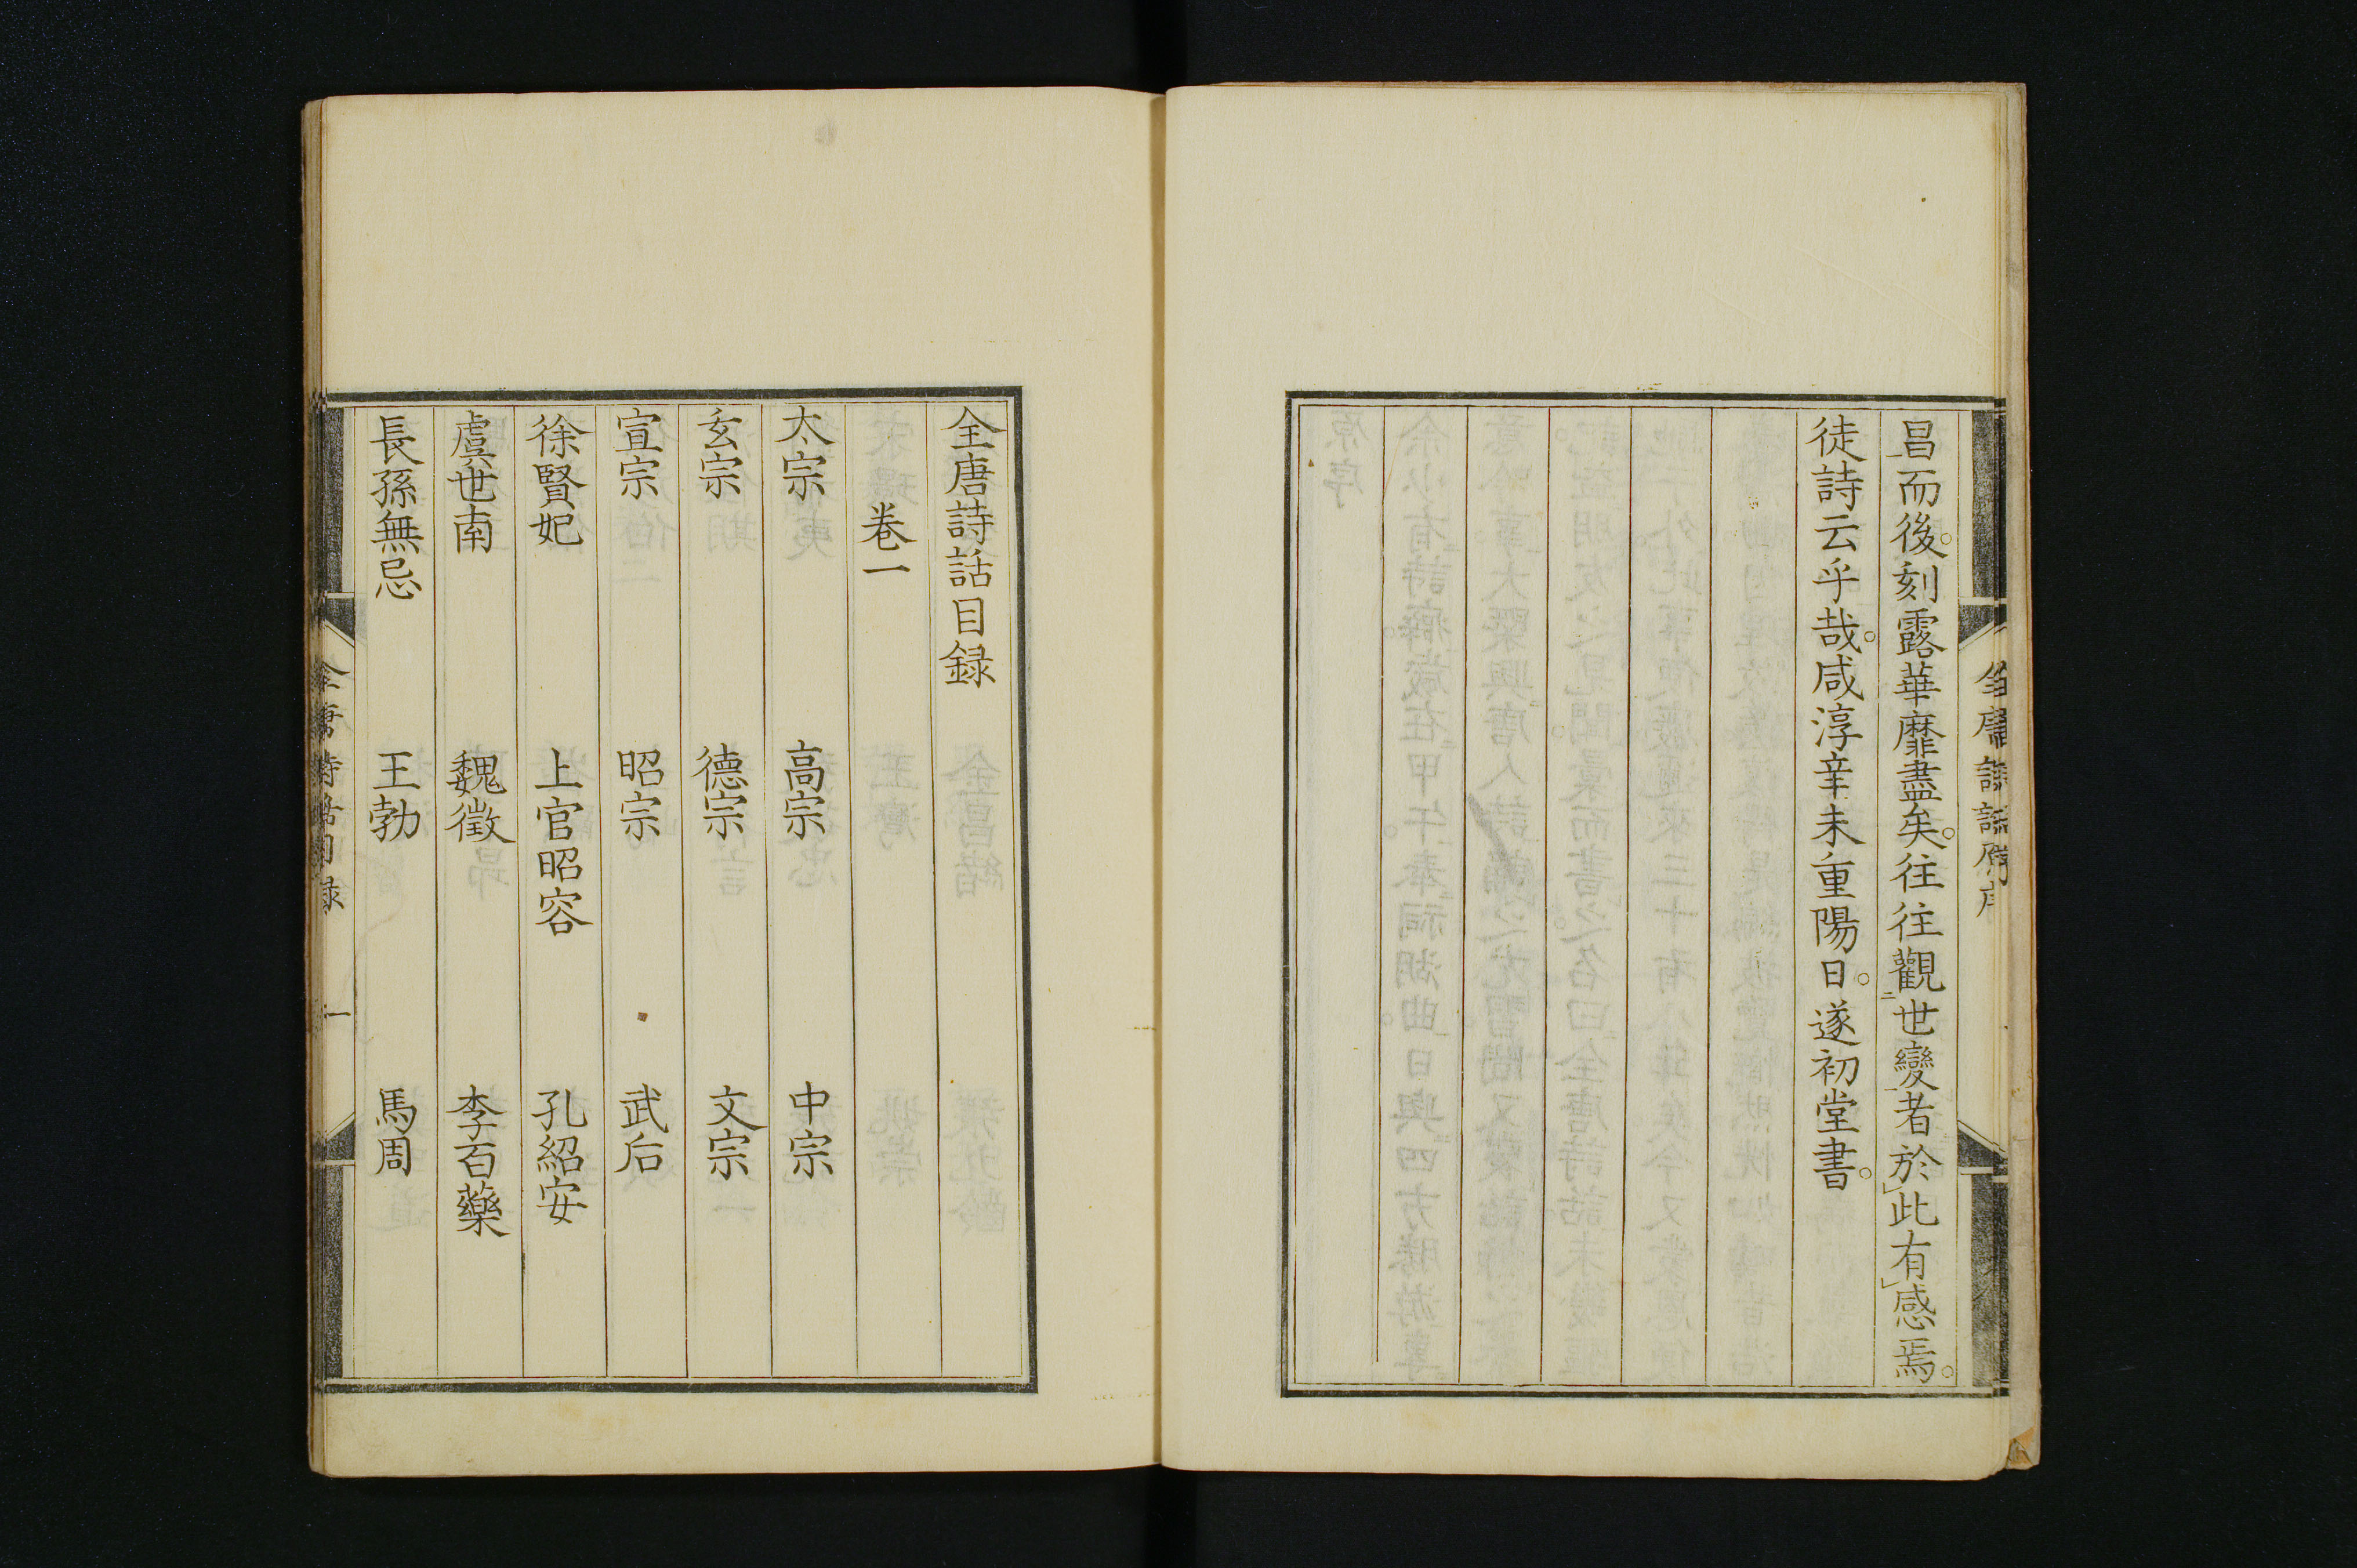 昌而後。刻露華靡盡矣。往往觀世變者於此有感焉。
徒詩云乎哉。咸淳辛未重陽日。遂初堂書。
全唐詩話目録
卷一
太宗 高宗 中宗
玄宗 德宗 文宗
宣宗 昭宗 武后
徐賢妃 上官昭容 孔紹安
虞世南 魏徵 李百藥
長孫無忌 王勃 馬周
全唐詩話目録 一